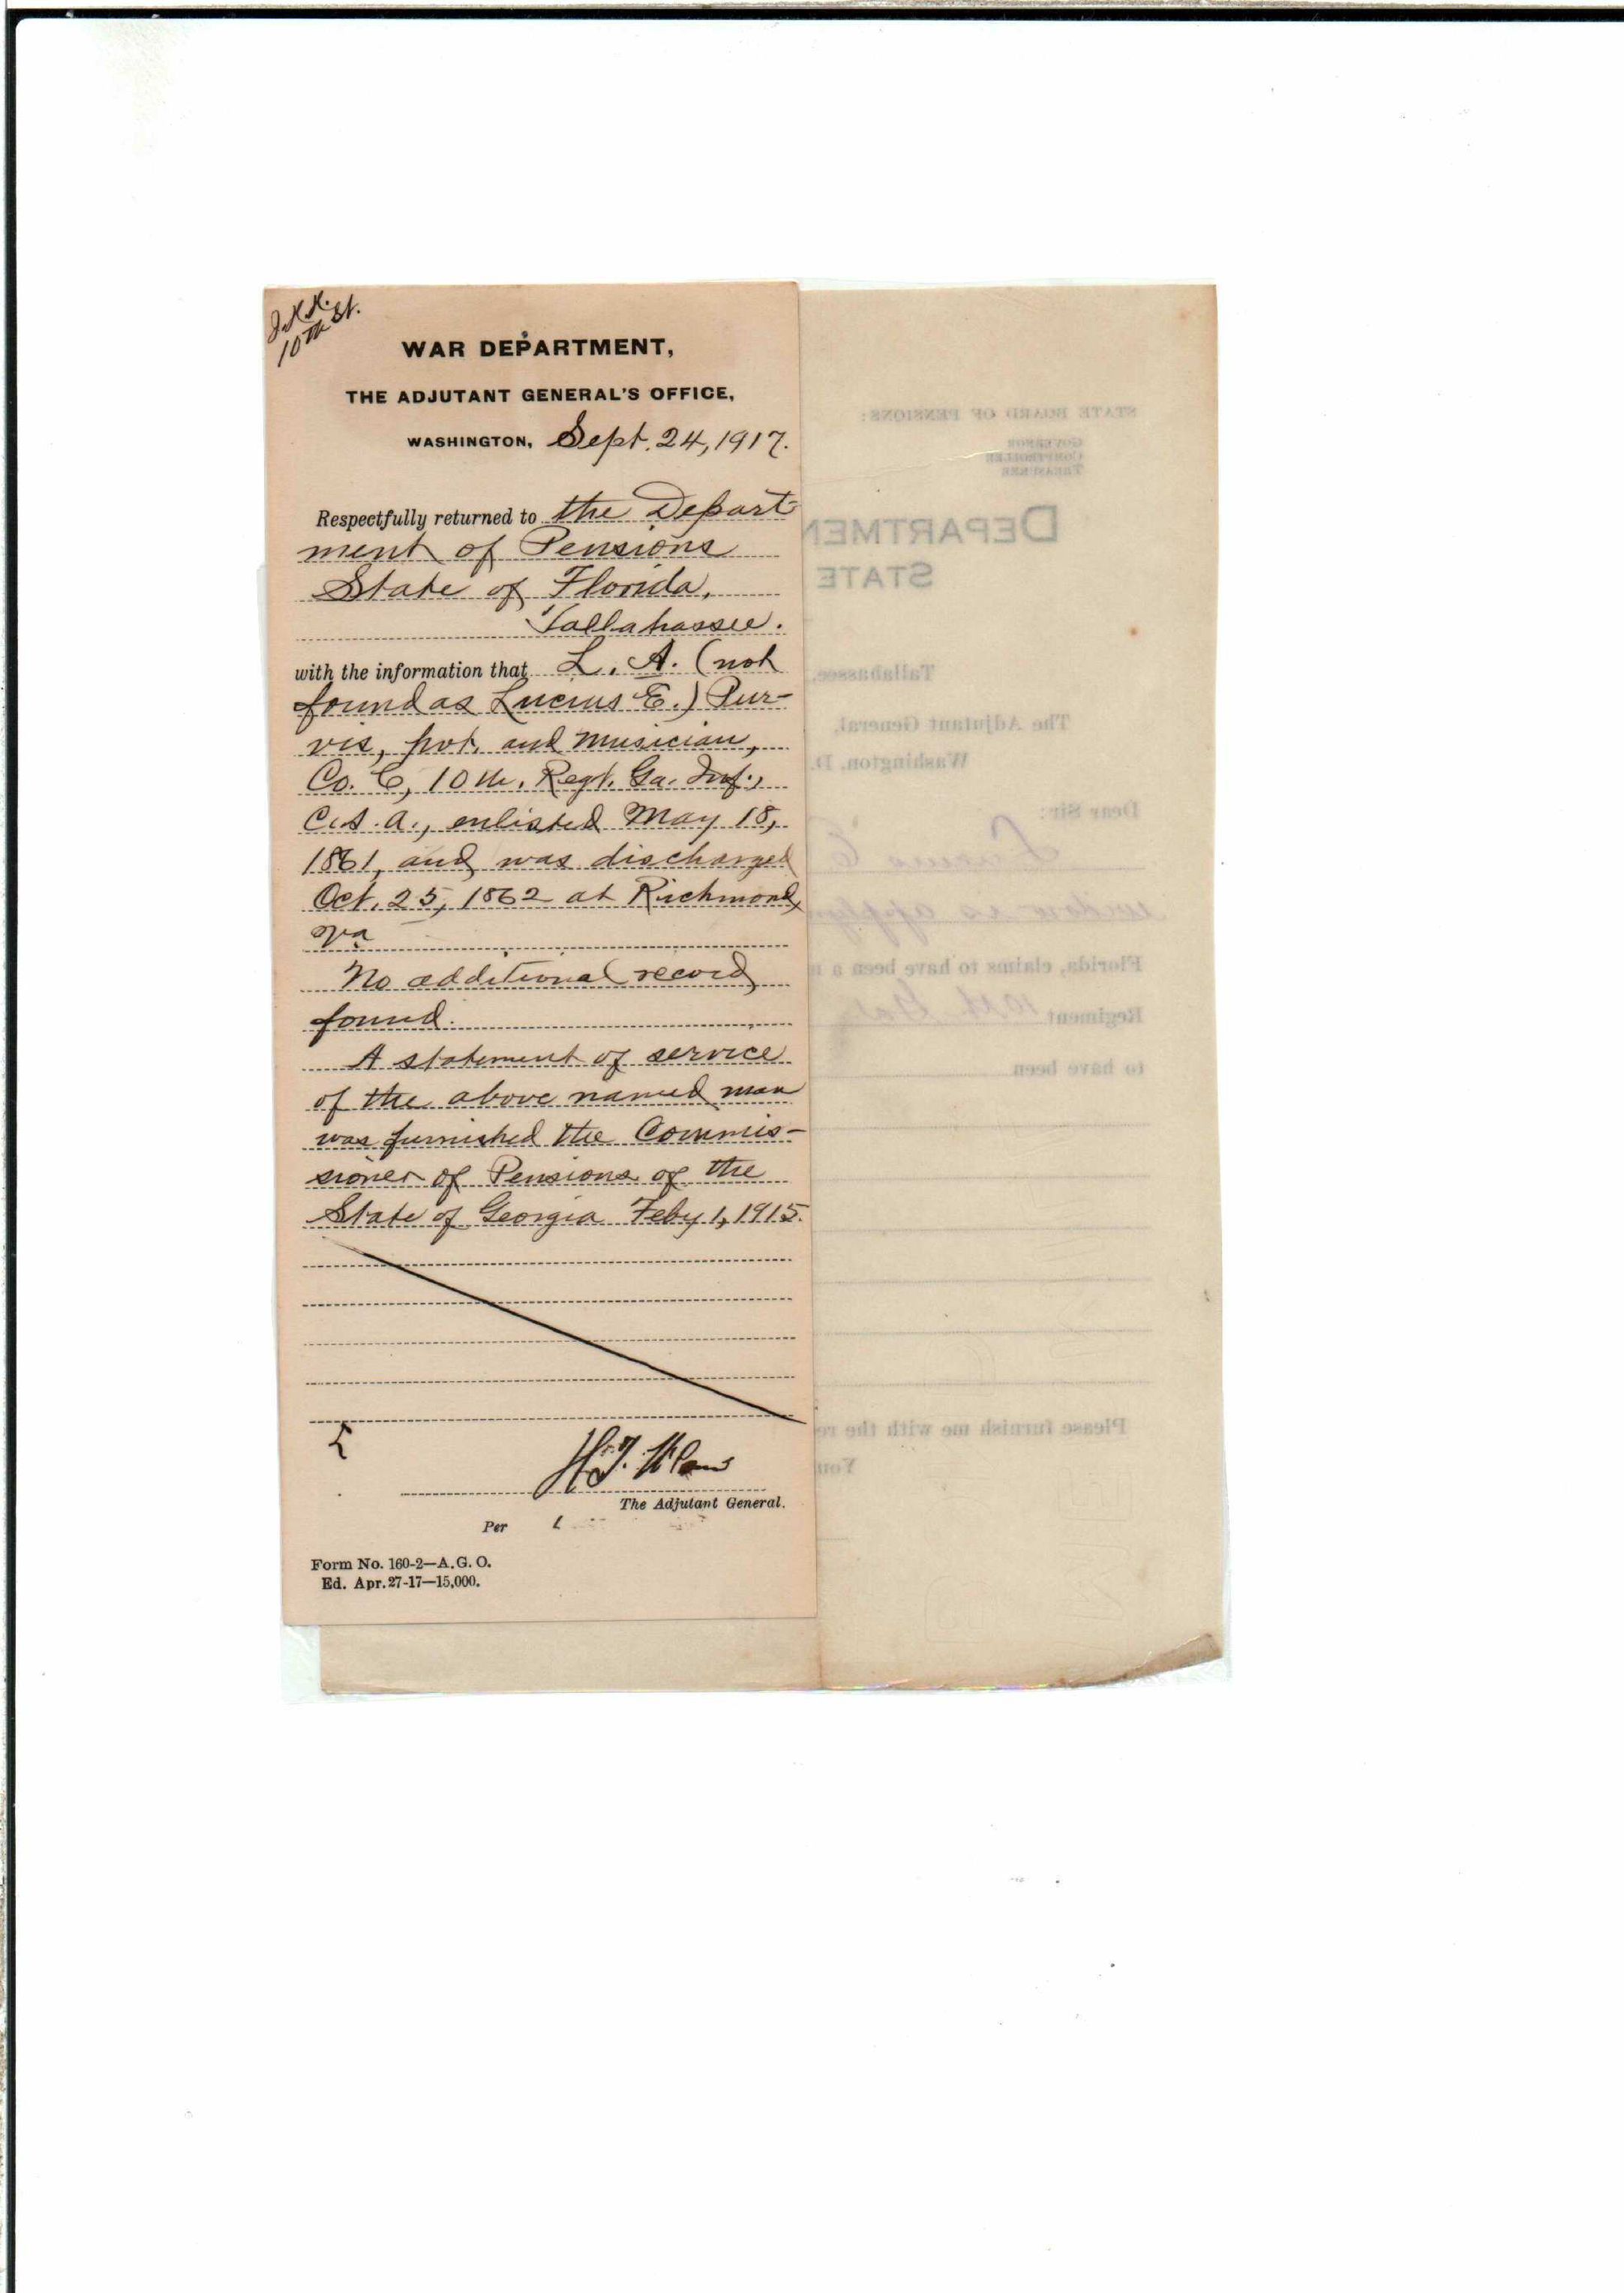 J.K.K.
10TH St.
WAR DEPARTMENT,
THE ADJUTANT GENERAL'S OFFICE,
WASHINGTON, Sept. 24, 1917.
Respectfully returned to the Depart-
ment of Pensions
State of Florida,
Tallahassee.
with the information that L. A. (not
found as Lucius E.) Pur-
vis, pvt. and musician,
Co. C, 10th. Regt. Ga. Inf.,
C.S.A., enlisted May 18,
1861, and was discharged
Oct. 25, 1862 at Richmond,
Va
No additional record
found.
A statement of service
of the above named man
was furnished the Commis-
sioner of Pensions of the
State of Georgia Feby 1, 1915.
The Adjutant General.
Per
Form No. 160-2—A.G.O.
Ed. Apr. 27-17—15,000.
STATE BOARD OF PENSIONS:
GOVERNOR
COMPTROLLER
TREASURER
DEPARTMEN
STATE
Tallahassee,
The Adjutant General,
Washington, D.
Dear Sir:
Lucius E
widow is apply
Florida, claims to have been a
Regiment 10th Ga
to have been
Please furnish me with the re
You